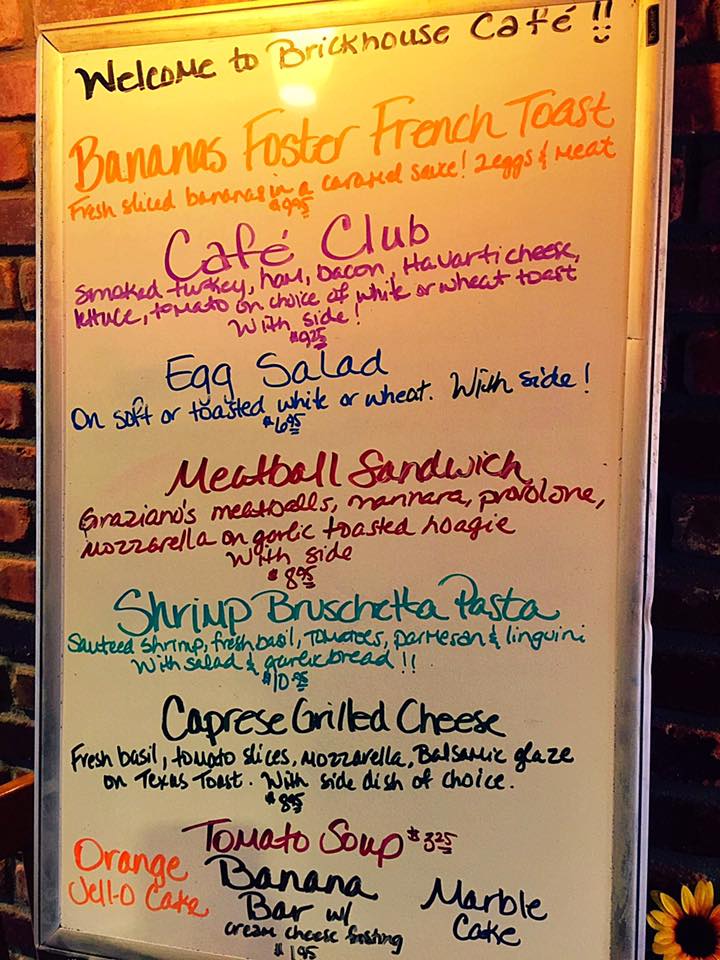 Welcome to Brickhouse Café !!
Bananas Foster French Toast
Fresh sliced bananas in a caramel sauce! 2 eggs & meat
$9.95
Café Club
Smoked turkey, ham, bacon, Havarti cheese,
lettuce, tomato on choice of white or wheat toast
With side!
$9.25
Egg Salad
On soft or toasted white or wheat. With side!
$6.95
Meatball Sandwich
Graziano's meatballs, marinara, provolone,
Mozzarella on garlic toasted hoagie
With side
$8.95
Shrimp Bruschetta Pasta
Sauteed shrimp, fresh basil, tomatoes, parmesan & linguini
With salad & garlic bread!!
$10.95
Caprese Grilled Cheese
Fresh basil, tomato slices, mozzarella, Balsamic glaze
on Texas Toast. With side dish of choice.
$8.95
Tomato Soup $3.25
Orange
Jell-O Cake
Banana
Bar w/
cream cheese frosting
$1.95
Marble
Cake